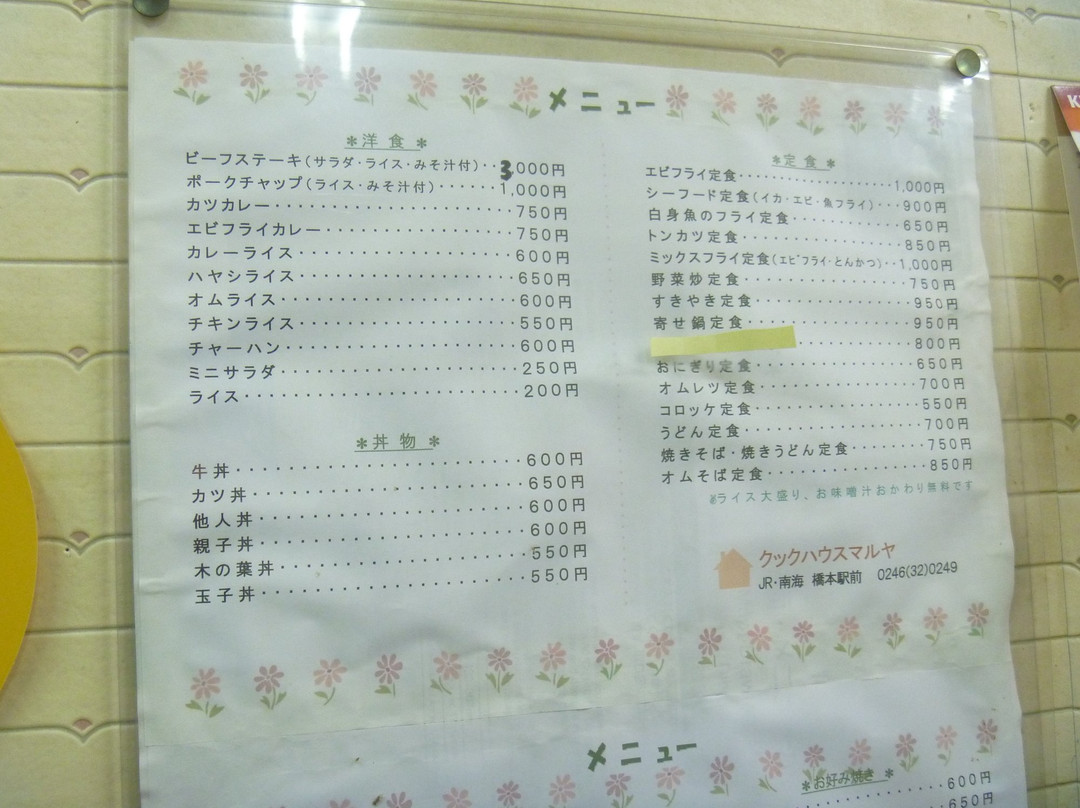 メニュー
*洋食*
ビーフステーキ(サラダ・ライス・みそ汁付)・・3,000円
ポークチャップ(ライス・みそ汁付)・・・・・・1,000円
カツカレー・・・・・・・・・・・・・・・・・・750円
エビフライカレー・・・・・・・・・・・・・・・750円
カレーライス・・・・・・・・・・・・・・・・・600円
ハヤシライス・・・・・・・・・・・・・・・・・650円
オムライス・・・・・・・・・・・・・・・・・・600円
チキンライス・・・・・・・・・・・・・・・・・550円
チャーハン・・・・・・・・・・・・・・・・・・600円
ミニサラダ・・・・・・・・・・・・・・・・・・250円
ライス・・・・・・・・・・・・・・・・・・・・200円
*丼物*
牛丼・・・・・・・・・・・・・・・・・・・・・600円
カツ丼・・・・・・・・・・・・・・・・・・・・650円
他人丼・・・・・・・・・・・・・・・・・・・・600円
親子丼・・・・・・・・・・・・・・・・・・・・600円
木の葉丼・・・・・・・・・・・・・・・・・・・550円
玉子丼・・・・・・・・・・・・・・・・・・・・550円
*定食*
エビフライ定食・・・・・・・・・・・・・・・・1,000円
シーフード定食(イカ・エビ・魚フライ)・・・900円
白身魚のフライ定食・・・・・・・・・・・・650円
トンカツ定食・・・・・・・・・・・・・・・850円
ミックスフライ定食(エビフライ・とんかつ)・・1,000円
野菜炒定食・・・・・・・・・・・・・・・・750円
すきやき定食・・・・・・・・・・・・・・・950円
寄せ鍋定食・・・・・・・・・・・・・・・・950円
・・・・・・・・・・・800円
おにぎり定食・・・・・・・・・・・・・・・650円
オムレツ定食・・・・・・・・・・・・・・・700円
コロッケ定食・・・・・・・・・・・・・・・550円
うどん定食・・・・・・・・・・・・・・・・700円
焼きそば・焼きうどん定食・・・・・・・・750円
オムそば定食・・・・・・・・・・・・・・・850円
※ライス大盛り、お味噌汁おかわり無料です
クックハウスマルヤ
JR・南海 橋本駅前 0246(32)0249
メニュー
*お好み焼き*
・・・・・600円
650円